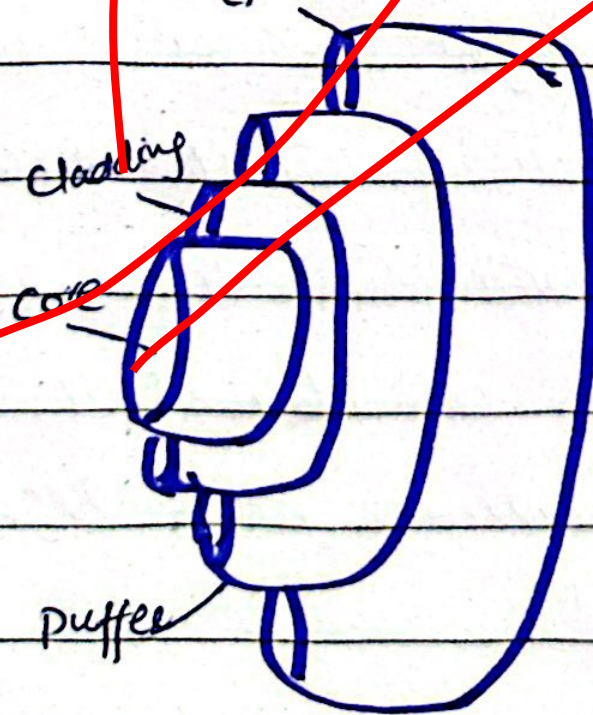 Cladding
Core
Puffer